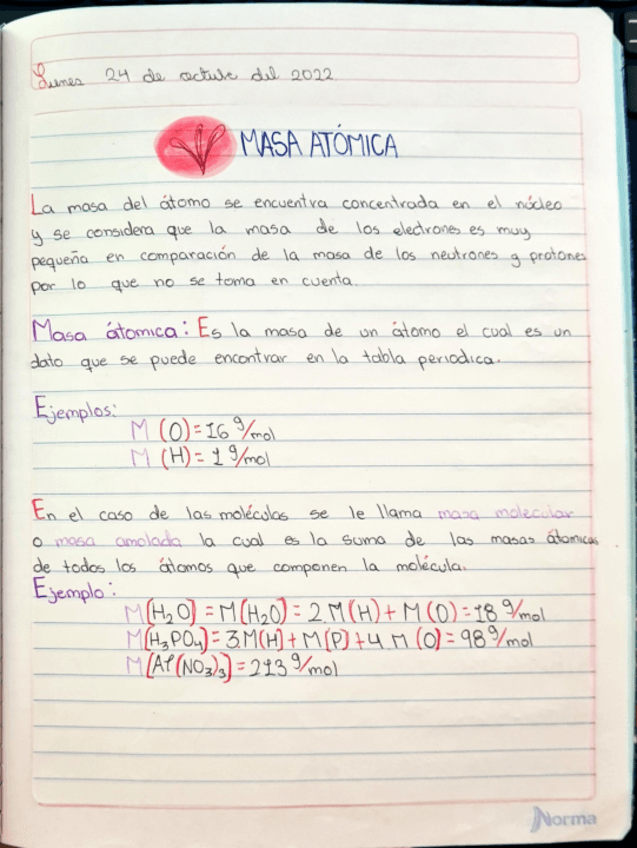 Lunes 24 de octubre del 2022
MASA ATÓMICA
La masa del átomo se encuentra concentrada en el núcleo
y se considera que la masa de los electrones es muy
pequeña en comparación de la masa de los neutrones y protones
por lo que no se toma en cuenta.
Masa átomica: Es la masa de un átomo el cual es un
dato que se puede encontrar en la tabla periodica.
Ejemplos:
M (O) = 16 g/mol
M (H) = 1 g/mol
En el caso de las moléculas se le llama masa molecular
o masa amolada la cual es la suma de las masas átomicas
de todos los átomos que componen la molécula.
Ejemplo:
M(H₂O) = M(H₂O) = 2 M(H) + M(O) = 18 g/mol
M(H₃PO₄) = 3.M(H) + M(P) + 4 M (O) = 98 g/mol
M[Al(NO₃)₃] = 213 g/mol
Norma